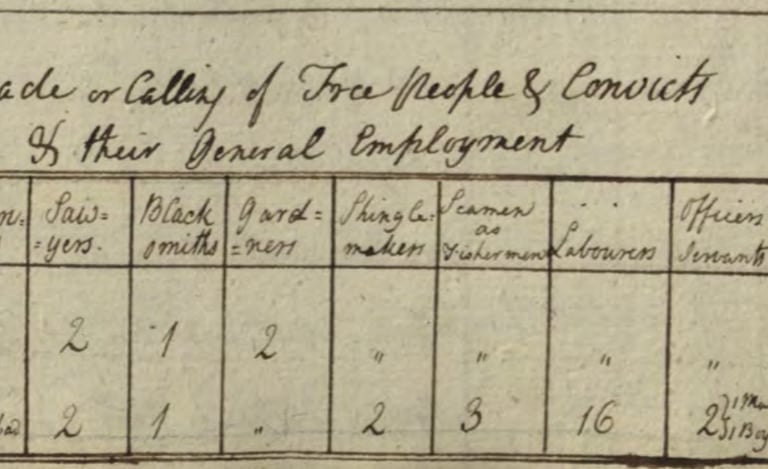 ade or Calling of Free People & Convicts
& their General Employment
Saw= Black Gard= Shingle= Seamen Officers
=yers. smiths =ners makers as Fishermen Labourers Servants
2 1 2 " " " "
2 1 " 2 3 16 2 } 1 Ma
1 Boy